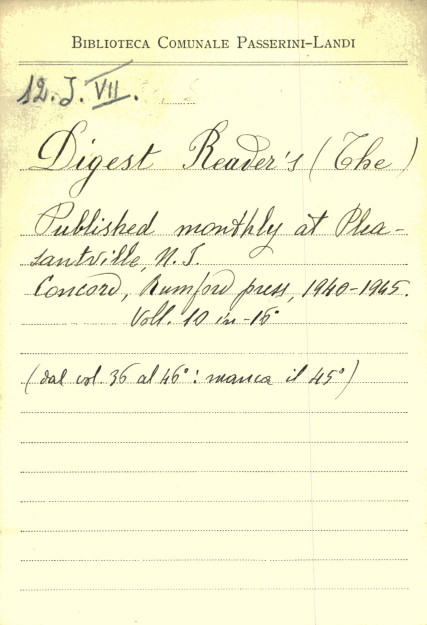 BIBLIOTECA COMUNALE PASSERINI-LANDI
12. J. VII.
Digest Reader's (The)
Published monthly at Plea-
santville, N. J.
Concord, Rumford press, 1940-1945.
Voll. 10 in-16°
(dal vol. 36 al 46°: manca il 45°)